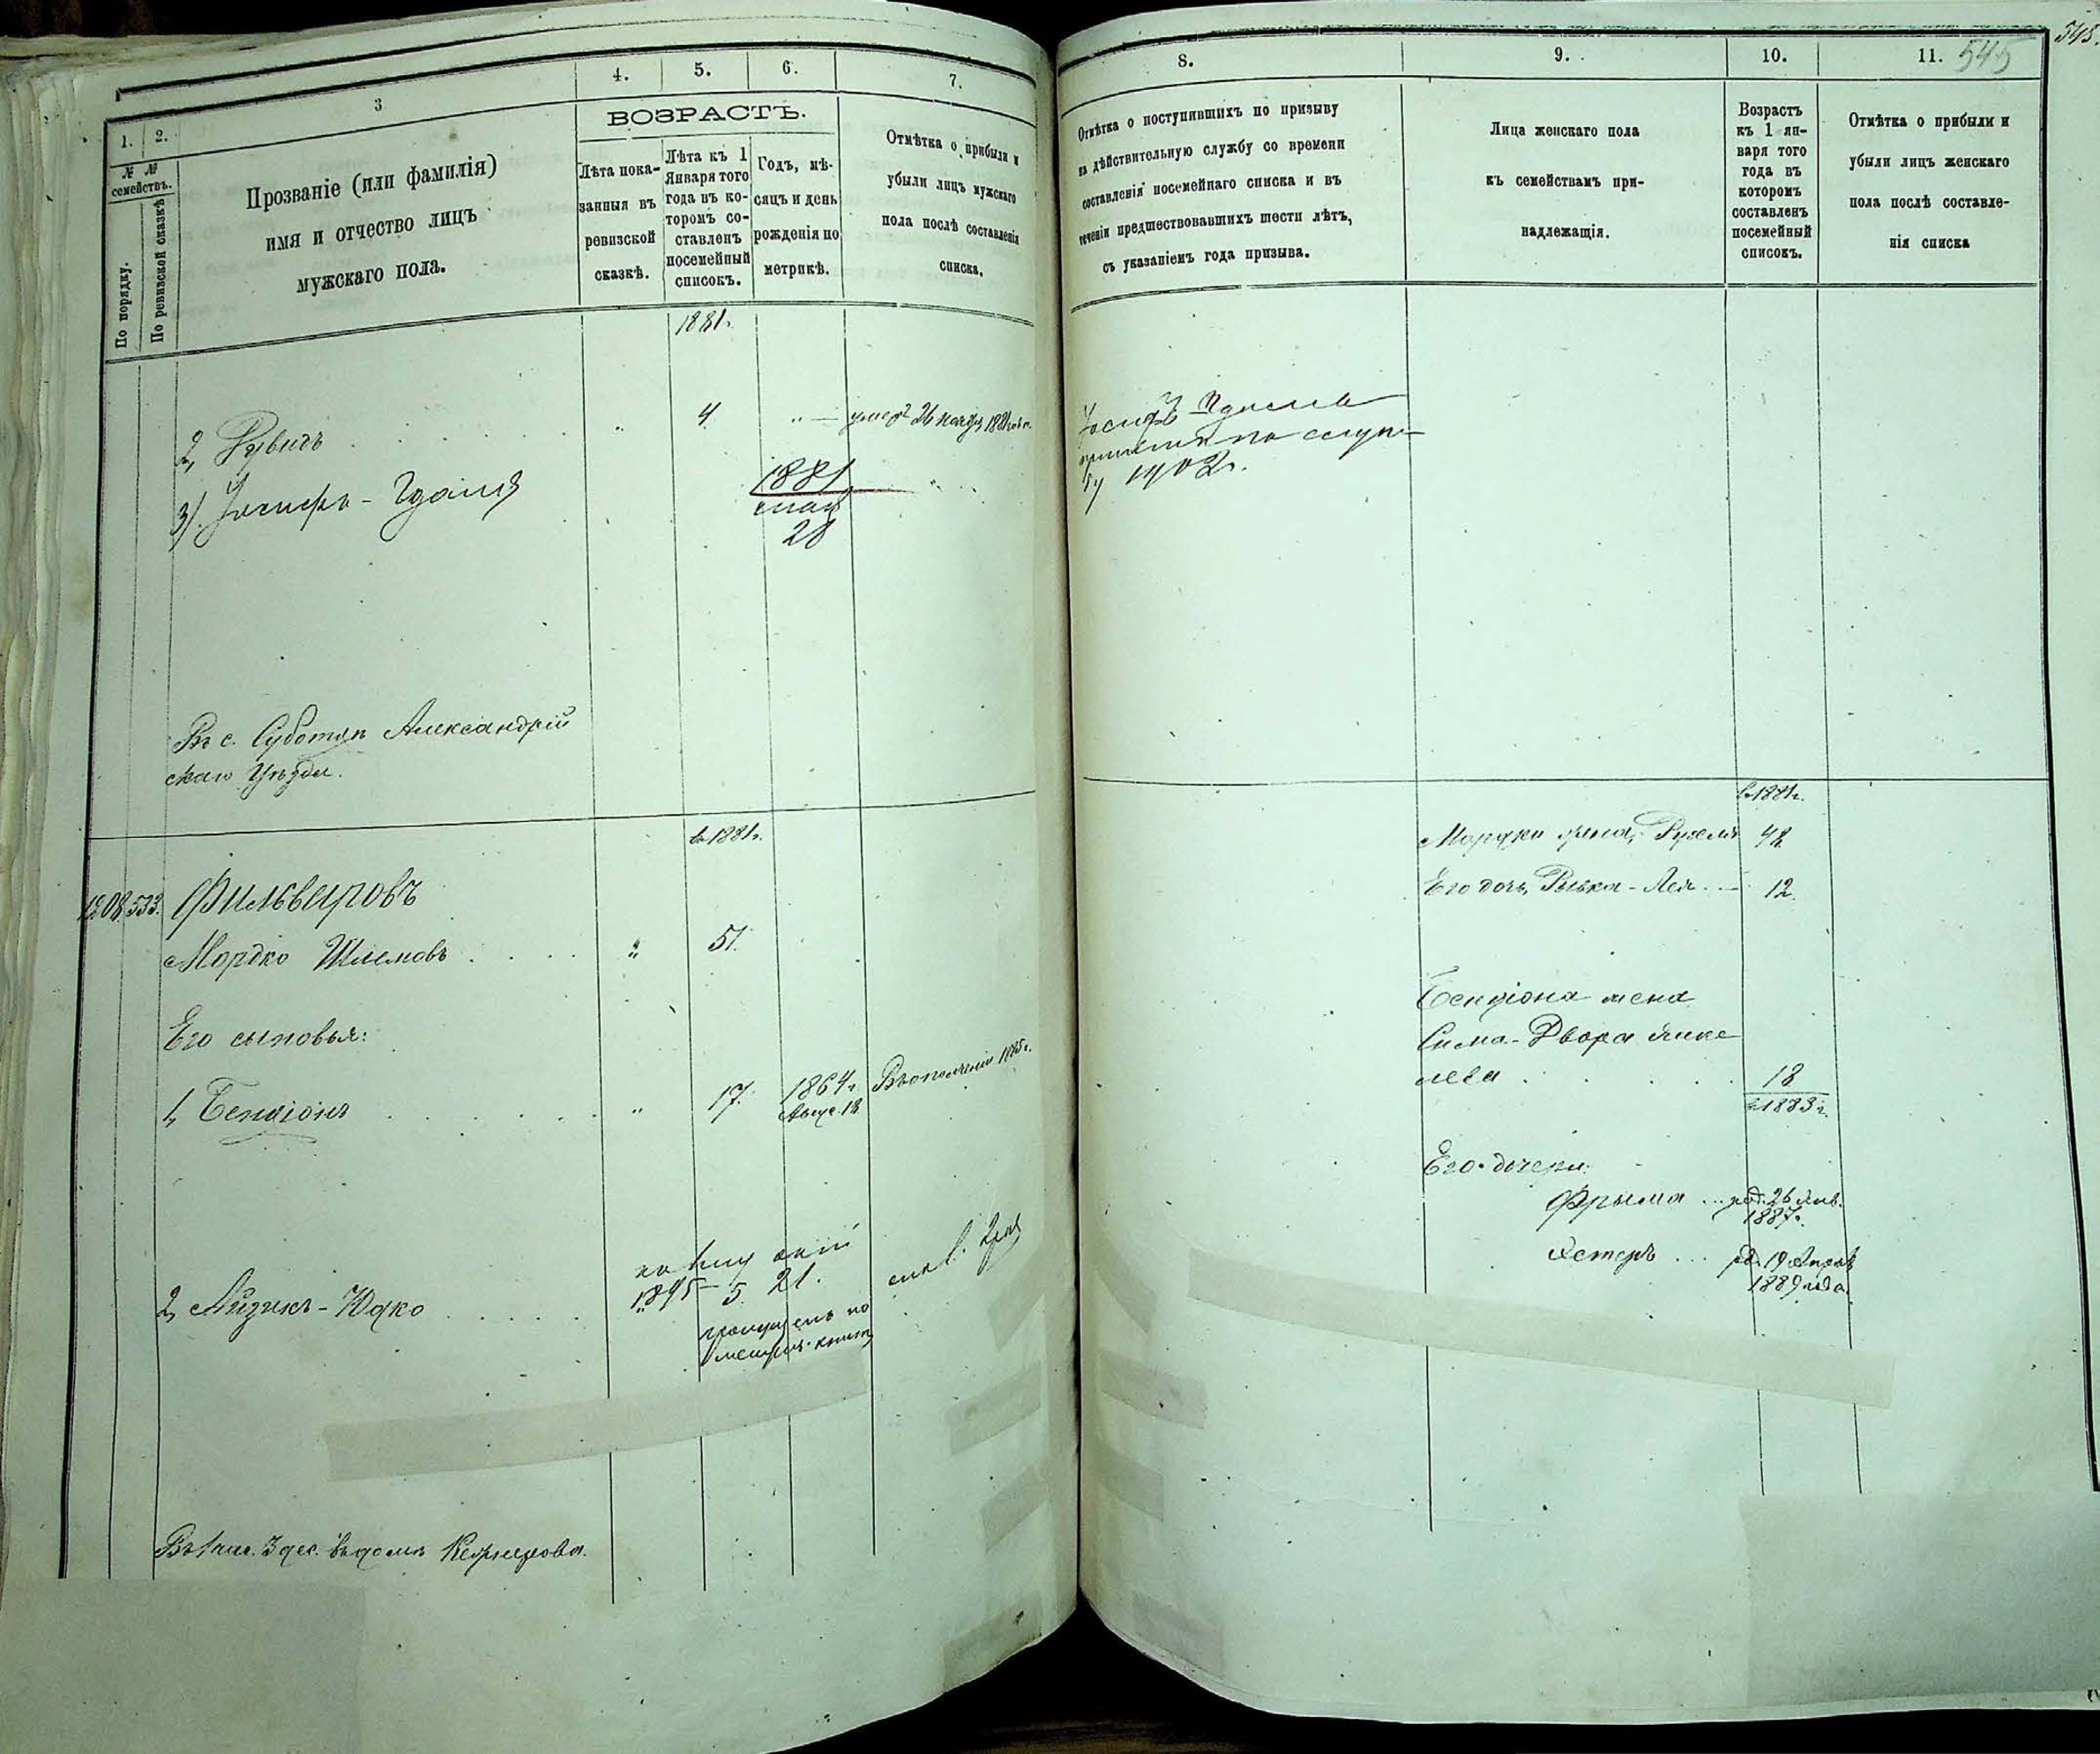 1.
2.
3
4.
5.
6.
7.
№ №
семействъ.
По порядку.
По ревизской сказкѣ
Прозваніе (или фамилія)
имя и отчество лицъ
мужскаго пола.
ВОЗРАСТЪ.
Лѣта пока-
занныя въ
ревизской
сказкѣ.
Лѣта къ 1
Января того
года въ ко-
торомъ со-
ставленъ
посемейный
списокъ.
Годъ, мѣ-
сяцъ и день
рожденія по
метрикѣ.
Отмѣтка о прибыли и
убыли лицъ мужскаго
пола послѣ составленія
списка.
1881г.
2, Рувидъ
4
" — умеръ 26
3) Іосифъ-Гдаля
1881
мая
28
Въ с. Суботцѣ Александрій
скаго Уѣзда.
въ 1881г.
1208. 533. Фильваровъ
Мордко Шлемовъ " 51.
Его сыновья:
1, Бенціонъ " 17. 1864г.
Авг. 18
Въ ополченіи 1885г.
2, Айзикъ-Юдко
1895 — 21.
по
Въ 1 час. 3 дес. въ домѣ
8.
9.
10.
11. 545
545
Отмѣтка о поступившихъ по призыву
на дѣйствительную службу со времени
составленія посемейнаго списка и въ
теченіи предшествовавшихъ шести лѣтъ,
съ указаніемъ года призыва.
Лица женскаго пола
къ семействамъ при-
надлежащія.
Возрастъ
къ 1 ян-
варя того
года въ
которомъ
составленъ
посемейный
списокъ.
Отмѣтка о прибыли и
убыли лицъ женскаго
пола послѣ составле-
нія списка
Іосифъ Гдаля
принятъ на служ-
бу 1902г.
въ 1881г.
Мордки жена, Рухля 48
Его дочь, Рывка-Лея 12.
Бенціона жена
Сима-Двора Янке
лева 18
въ 1883г.
Его дочери:
Фрыма род. 26 Янв.
1887г.
Эстеръ род. 19 Апрѣля
1889 года